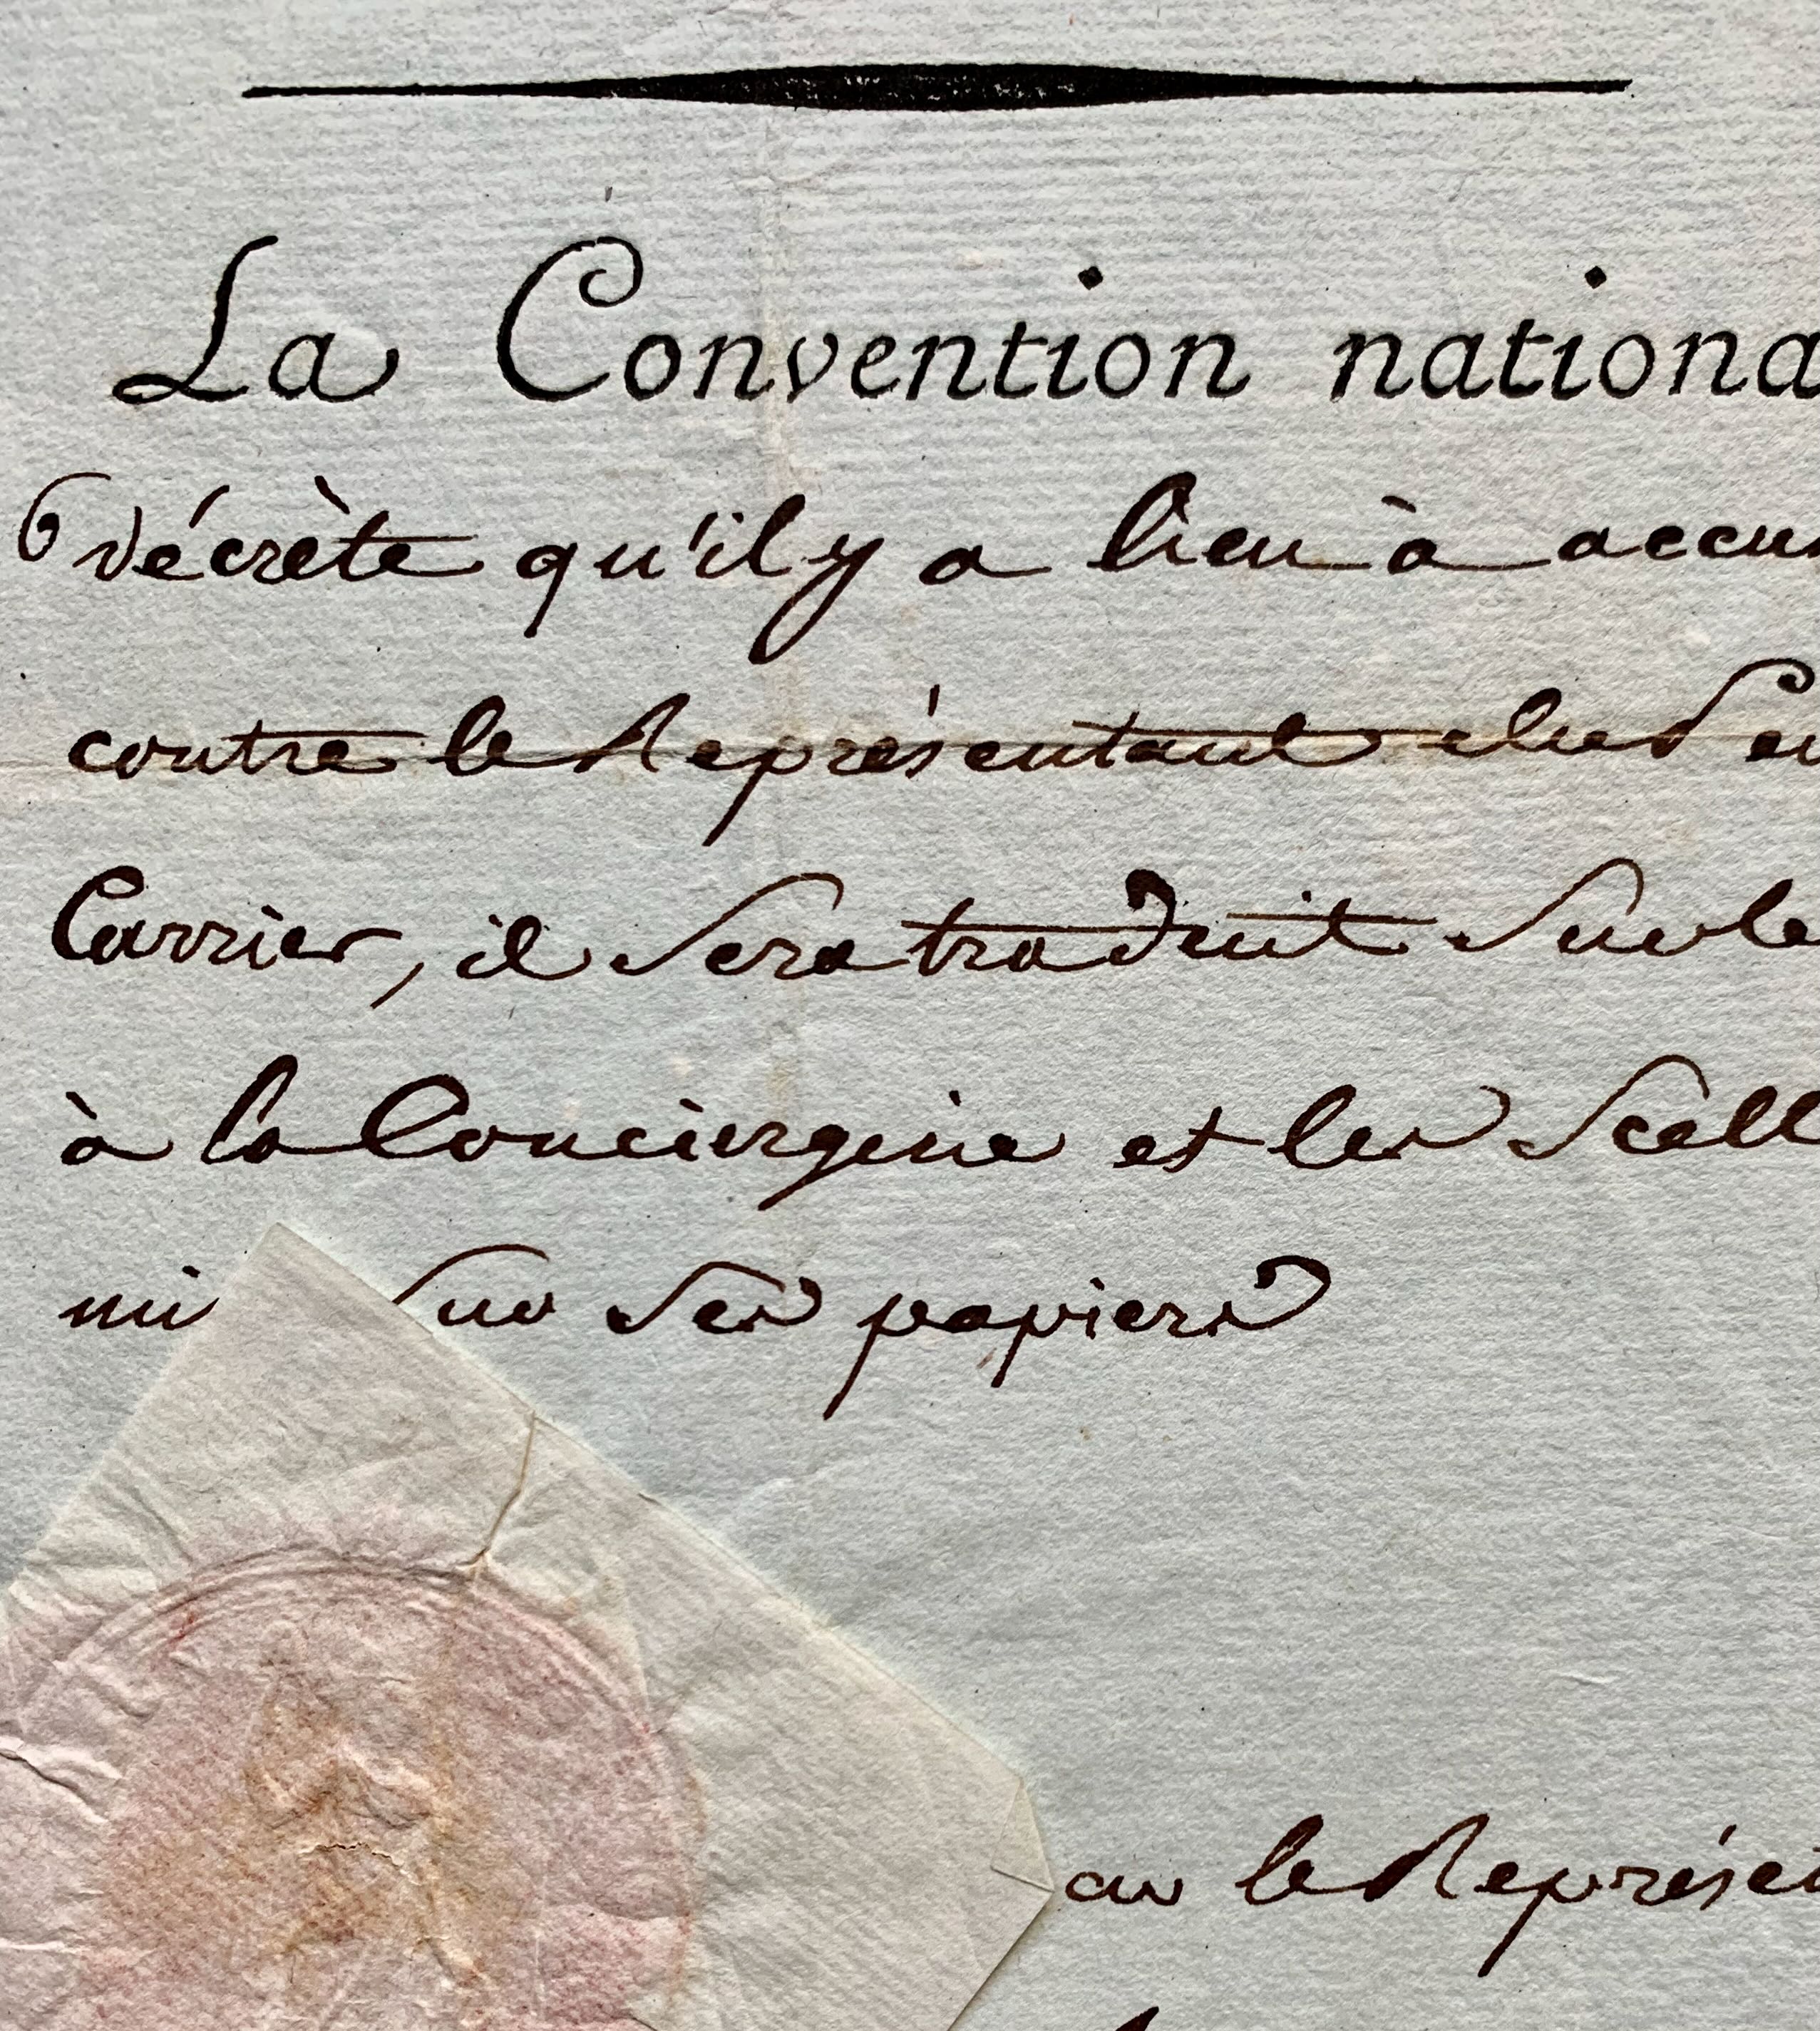 La Convention nationa
Décrète qu'il y a lieu à accus
contre le Représentant du Peu
Carrier, il sera traduit sur le
à la Conciergerie et les Scell
mis sur ses papiers
ar le Représen